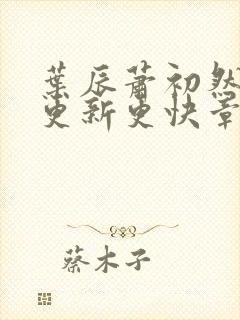 葉辰蕭初然
更新更快章
蔡木子